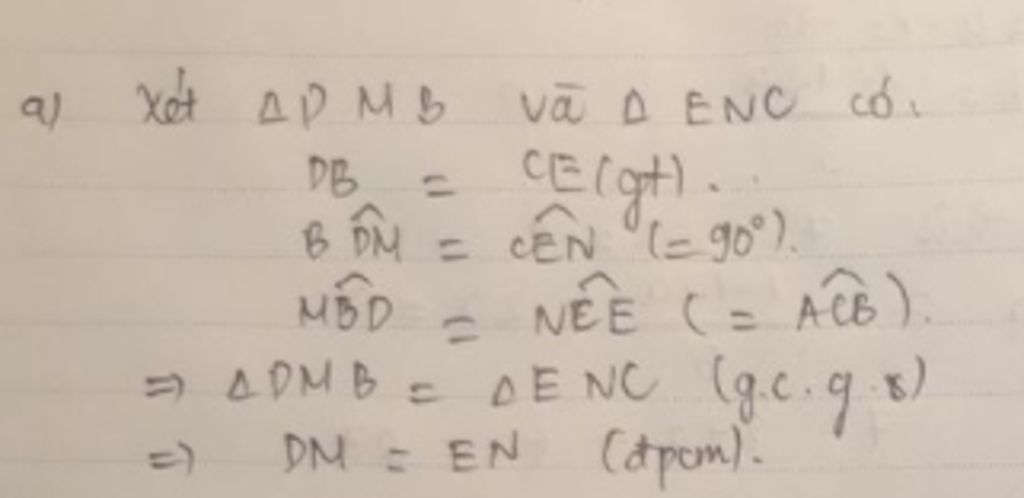 a) Xét Δ DMB và Δ ENC có.
DB = CE (gt).
BD̂M = CÊN (= 90°).
MB̂D = NĈE (= AĈB).
=> Δ DMB = Δ ENC (g.c.g)
=> DM = EN (đpcm).